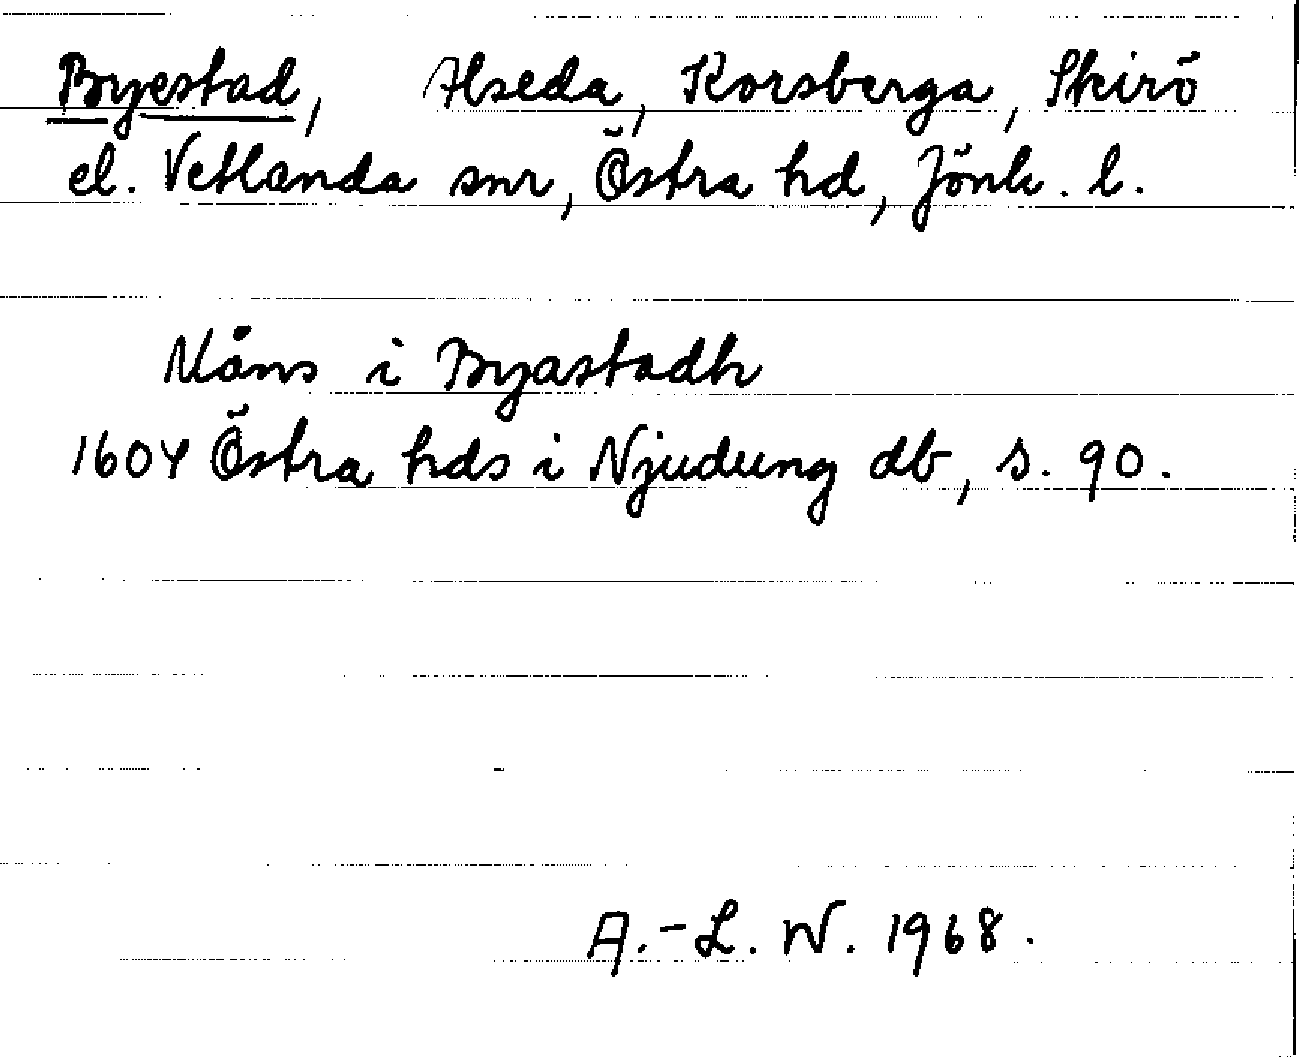 Byestad, Alseda, Korsberga, Skirö
el. Vetlanda snr, Östra hd, Jönk. l.
Måns i Byastadh
1604 Östra hds i Njudung db, s. 90.
A.-L. W. 1968.